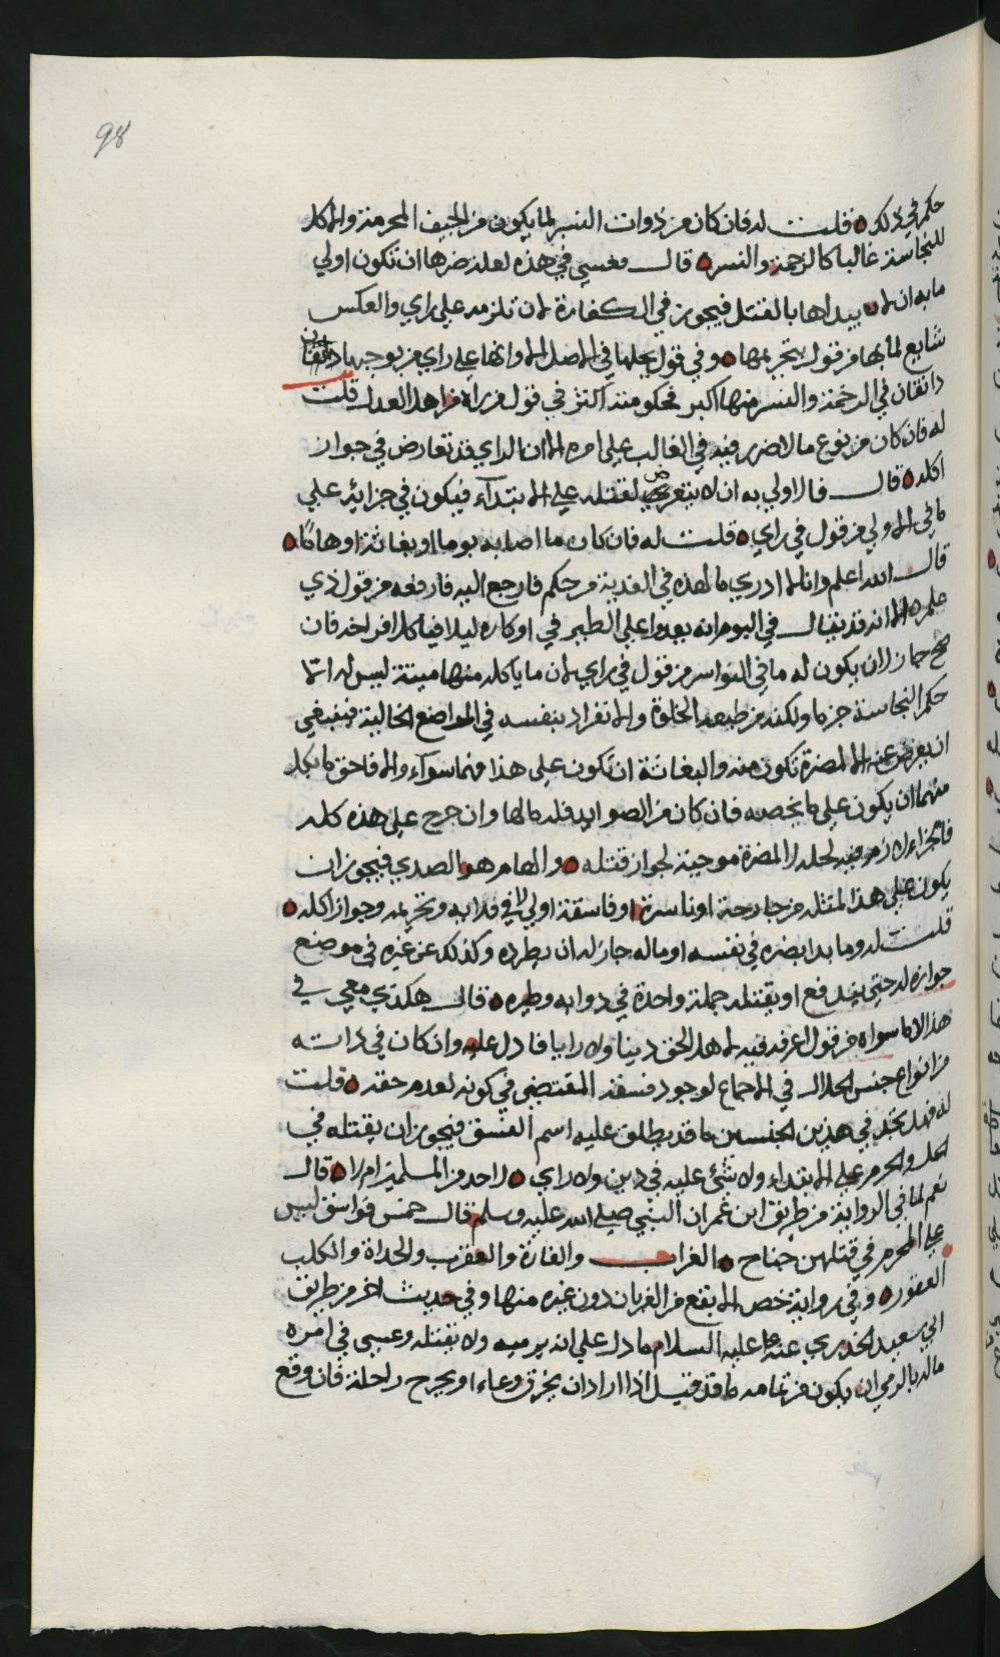 98
حكم في ذلك قلت له فان كان من ذوات النسر لما يكون من الجيف المحرمة والاكل
للنجاسة غالبا كالرخمة والنسر قال فعسى في هذه لعله ضرها ان تكون اولي
ما به ان لا يبداها بالقتل فيجوز في الكفارة لان تلزمه علي راي والعكس
شايع لما بها من قول بتحريمها وفي قول يحلها في الاصل الا وانها علي راي من يوجبها دانقان
دانقان في الرخمة والنسر منها اكبر فحكومته اكثر في قول من راه من اهل العدل قلت
له فان كان من نوع مالا ضرر فيه في الغالب علي امره الا ان الراي قد تعارض في جواز
اكله قال فالاولي به ان لا يتعرض لقتله علي الابتدآء فيكون في جزائه علي
ما في الاولي من قول في راي قلت له فان كان ما اصابه بوما او بغاثة او هاما
قال الله اعلم وانا لا ادري ما لهذه في الفدية من حكم فارجع اليه فارفعه من قول ذي
علم الا انه قد يقال في البوم انه يعدوا علي الطير في اوكاره ليلا فياكل افراخه فان
صح جاز لان يكون له ما في النواسر من قول في راي لان ما ياكله منها ميتة ليس له الا
حكم النجاسة جزما ولكنه من طبعه الخلوة والانفراد بنفسه في المواضع الخالية فينبغي
ان يعرض عنه الا لمضرة تكون منه والبغاثة ان تكون علي هذا فهما سوآء والا فاحق ما بكل
منهما ان يكون علي ما يخصه فان كان من الصوايد فله مالها وان خرج علي هذه كله
فالجزاء لازم فيه لحله الا لمضرة موجبة لجواز قتله والهام هو الصدي فيجوز ان
يكون علي هذا لمثله من جارحة او ناسرة او فاسقة اولي لا في فدايه وتحريمه وجواز اكله
قلت له وما بدا بضره في نفسه او ماله جاز له ان يطرده وكذلك عن غيره في موضع
جوازه له حتي يندفع او يقتله جملة واحدة في دوابه وطيره قال هكذي معي في
هذا لا ما سواه من قول اعرفه فيه لاهل الحق دينا ولا رايا فادل عليه وان كان في ذاته
من انواع جنس الحلال في الاجماع لوجود فسقه المقتضي في كونه لعدم حقه قلت
له فهل تجد في هذين الجنسين ما قد يطلق عليه اسم الفسق فيجوز ان يقتله في
الحل والحرم علي الابتداء ولا شئ عليه في دين ولا راي لاحد من المسلمين ام لا قال
نعم لما في الرواية من طريق ابن عمران النبي صلي الله عليه وسلم قال خمس فواسق ليس
علي المحرم في قتلهن جناح الغراب والفارة والعقرب والحداة والكلب
العقور وفي رواية خص الابقع من الغربان دون غيره منها وفي حديث اخر من طريق
ابي سعيد الخدري عنه عليه السلام ما دل علي انه يرميه ولا يقتله وعسي في امره
ماله بالرمي ان يكون من تمامه ما قد قيل اذا اراد ان يخرق وعاء او يجرح راحلة فان وقع